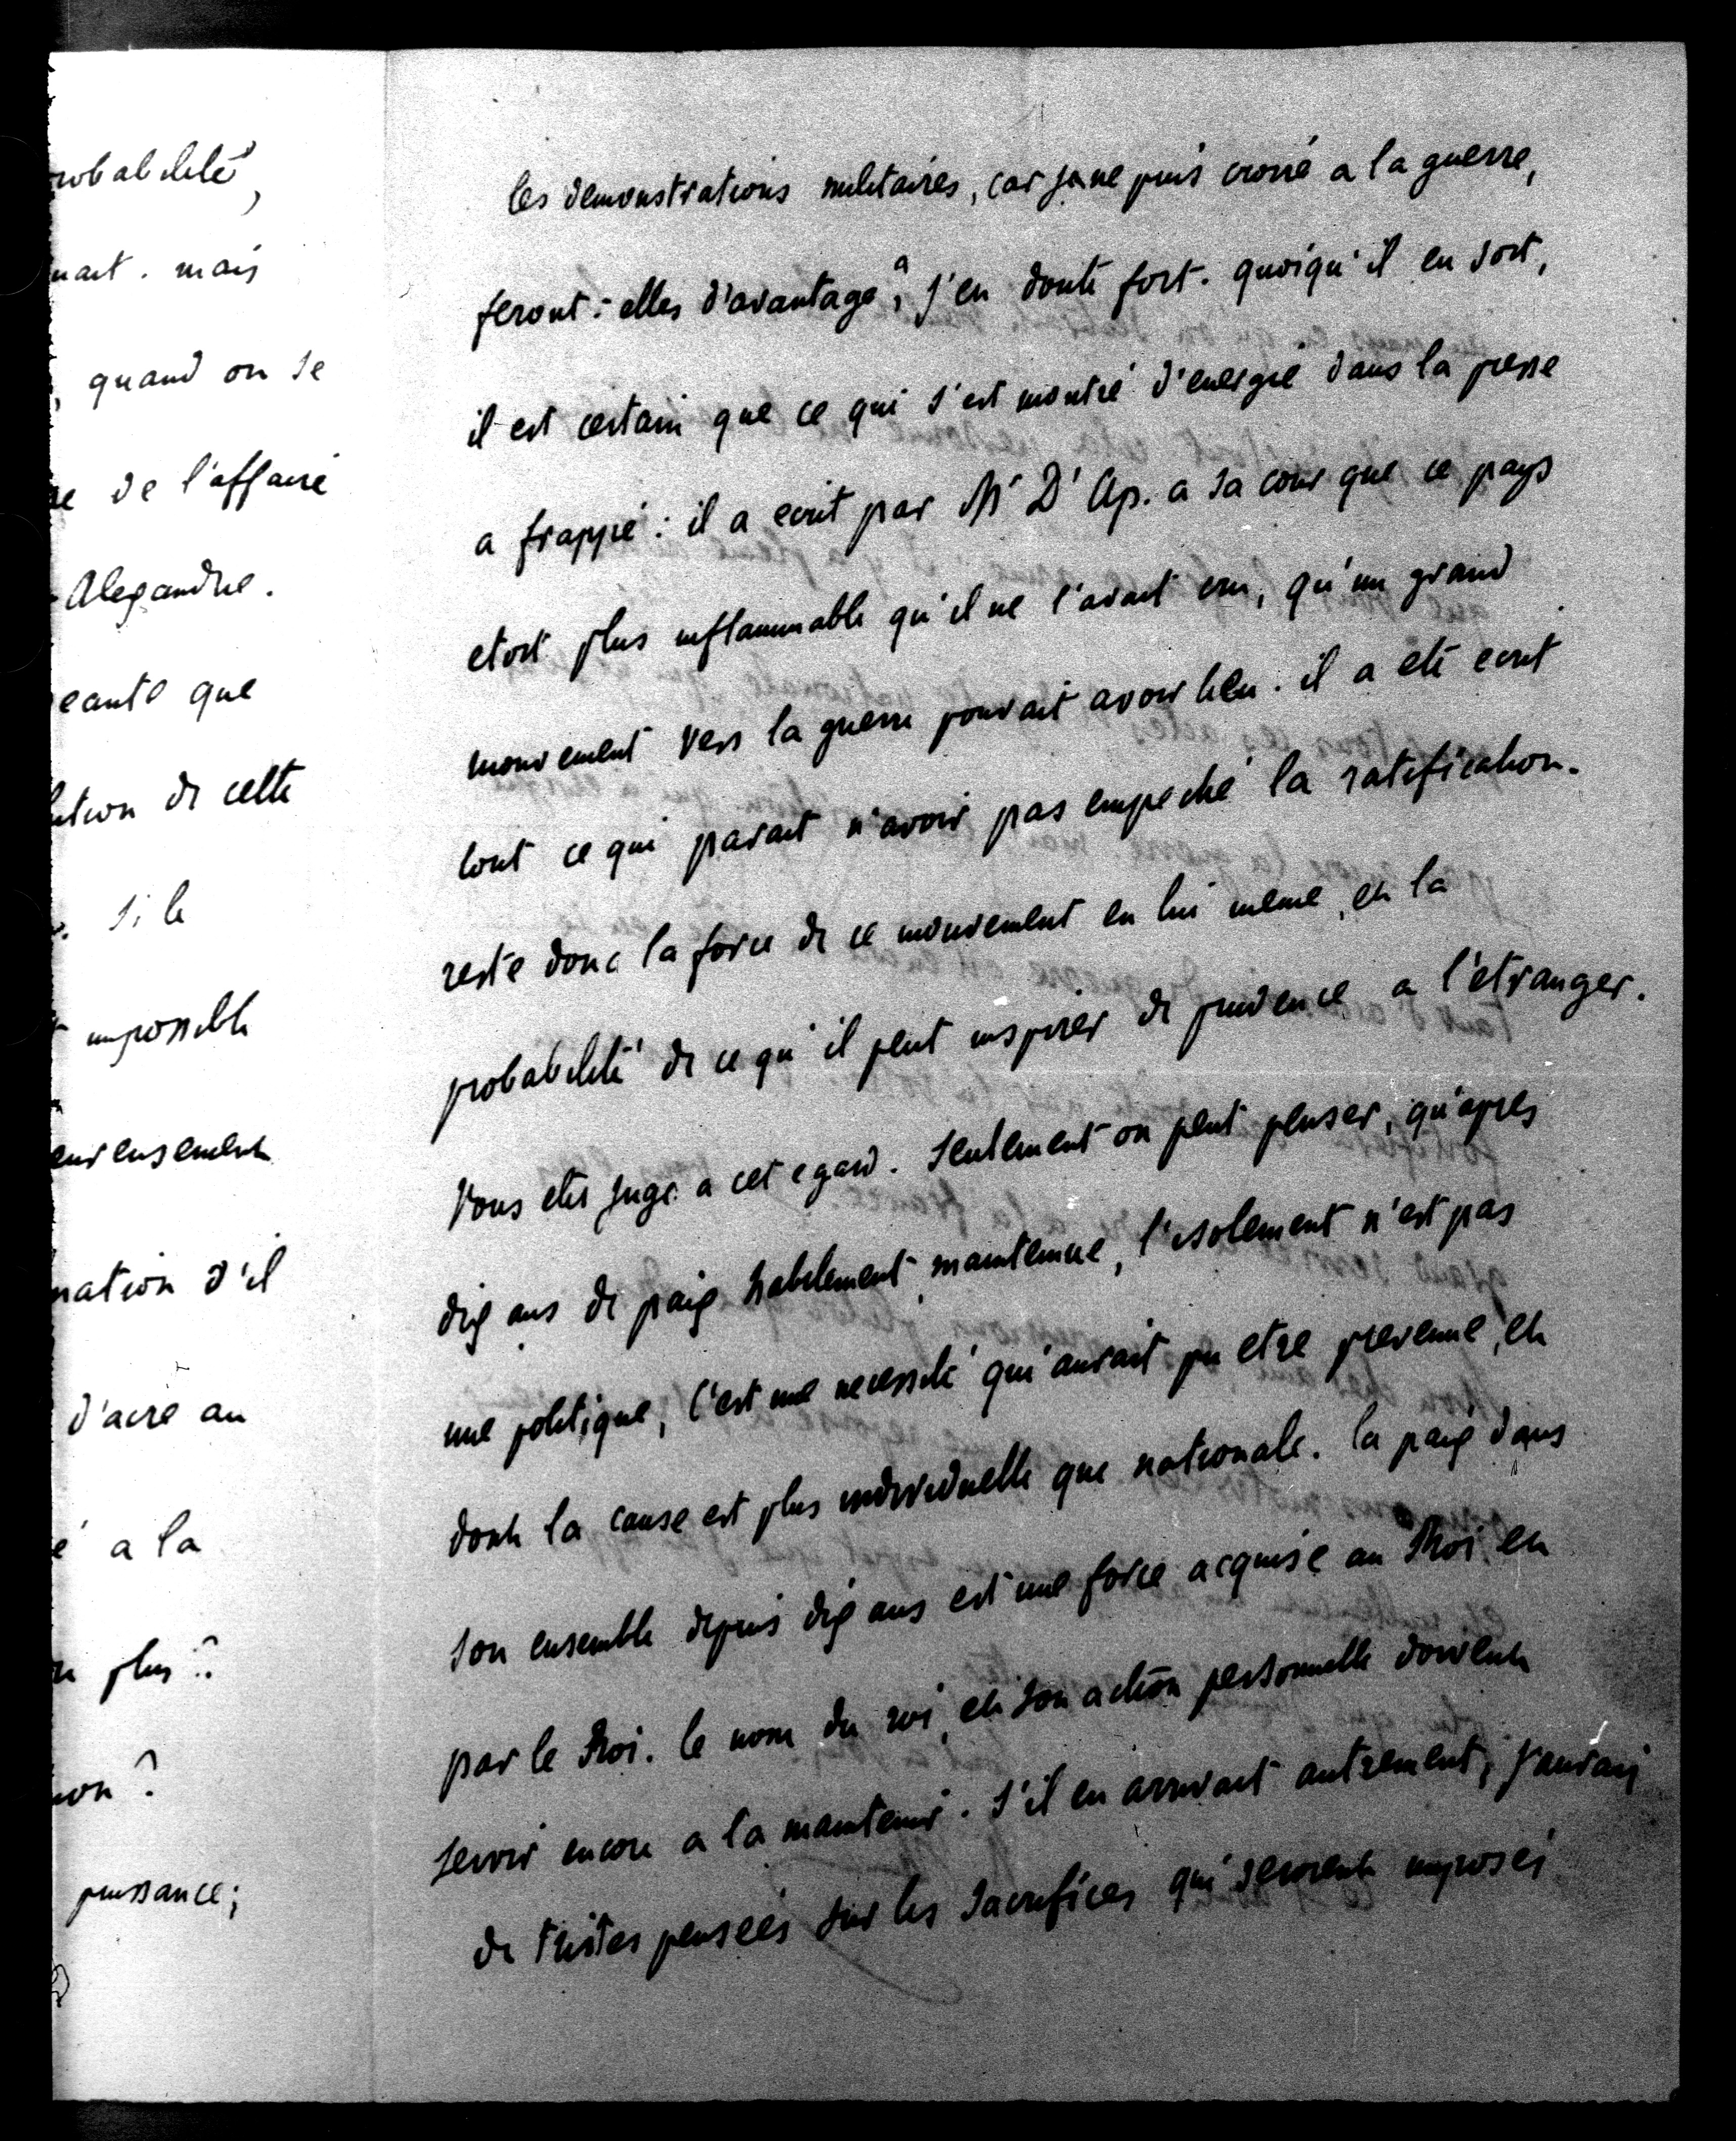 robabilité,
nait. mais
, quand on se
re de l'affaire
Alexandre.
eante que
lution de cette
. si le
t impossible
eureusement
nation s'il
d'acre au
é a la
n plus ?
ion ?
puissance;
les demonstrations militaires, car je ne puis croire a la guerre,
feront-elles d'avantage? j'en doute fort. quoiqu'il en soit,
il est certain que ce qui s'est montré d'energie dans la presse
a frappé: il a ecrit par Mr D'Ap. a sa cour que ce pays
etoit plus inflammable qu'il ne l'avait cru, qu'un grand
mouvement vers la guerre pouvait avoir lieu. il a eté ecrit
tout ce qui parait n'avoir pas empeché la ratification.
reste donc la force de ce mouvement en lui meme, et la
probabilité de ce qu'il peut inspirer de prudence a l'etranger.
Vous etes juge a cet egard. seulement on peut penser, qu'apres
dix ans de paix habilement maintenue, l'isolement n'est pas
une politique, c'est une necessité qui aurait pu etre prevenue, et
dont la cause est plus individuelle que nationale. la paix dans
son ensemble depuis dix ans est une force acquise au Roi et
par le Roi. le nom du roi, et son action personnelle doivent
servir encore a la maintenir. s'il en arrivait autrement, j'aurais
de tristes pensées sur les sacrifices qui seroient imposés